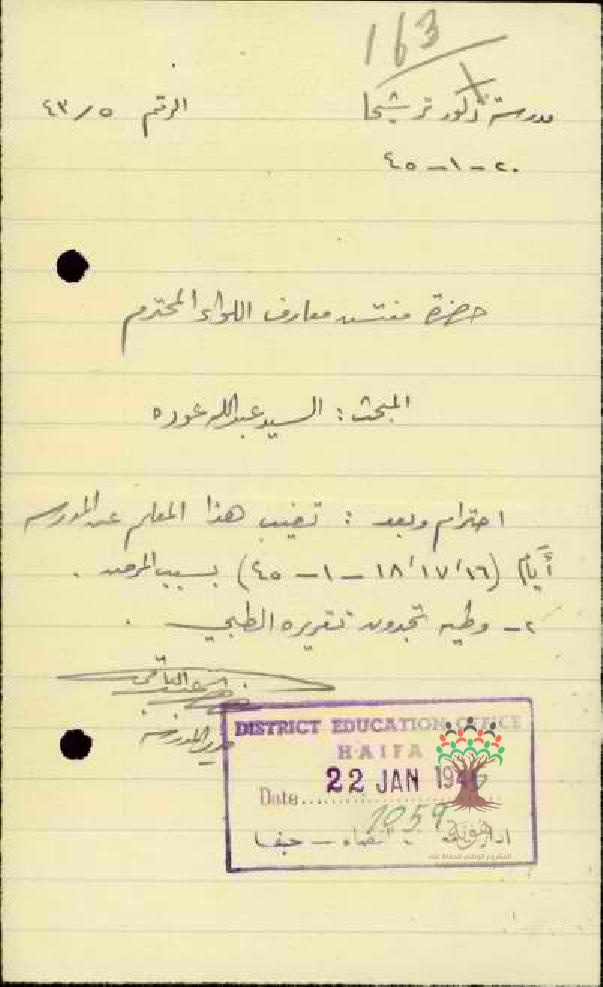 163
مدرسة ذكور ترشيحا
الرقم ٤٣/٥
٢٠-١-٤٥
حضرة مفتش معارف اللواء المحترم
المبحث : السيد عبدالله عوده
احترام وبعد : تغيب هذا المعلم عن المدرسه
أيام (١٦/ ١٧/ ١٨-١-٤٥) بسبب المرض .
٢- وطيه تجدون تقريره الطبي .
مدير المدرسه
DISTRICT EDUCATION OFFICE
HAIFA
22 JAN 194
Date
1059
حيفا
هوية
المشروع الوطني للحفاظ على